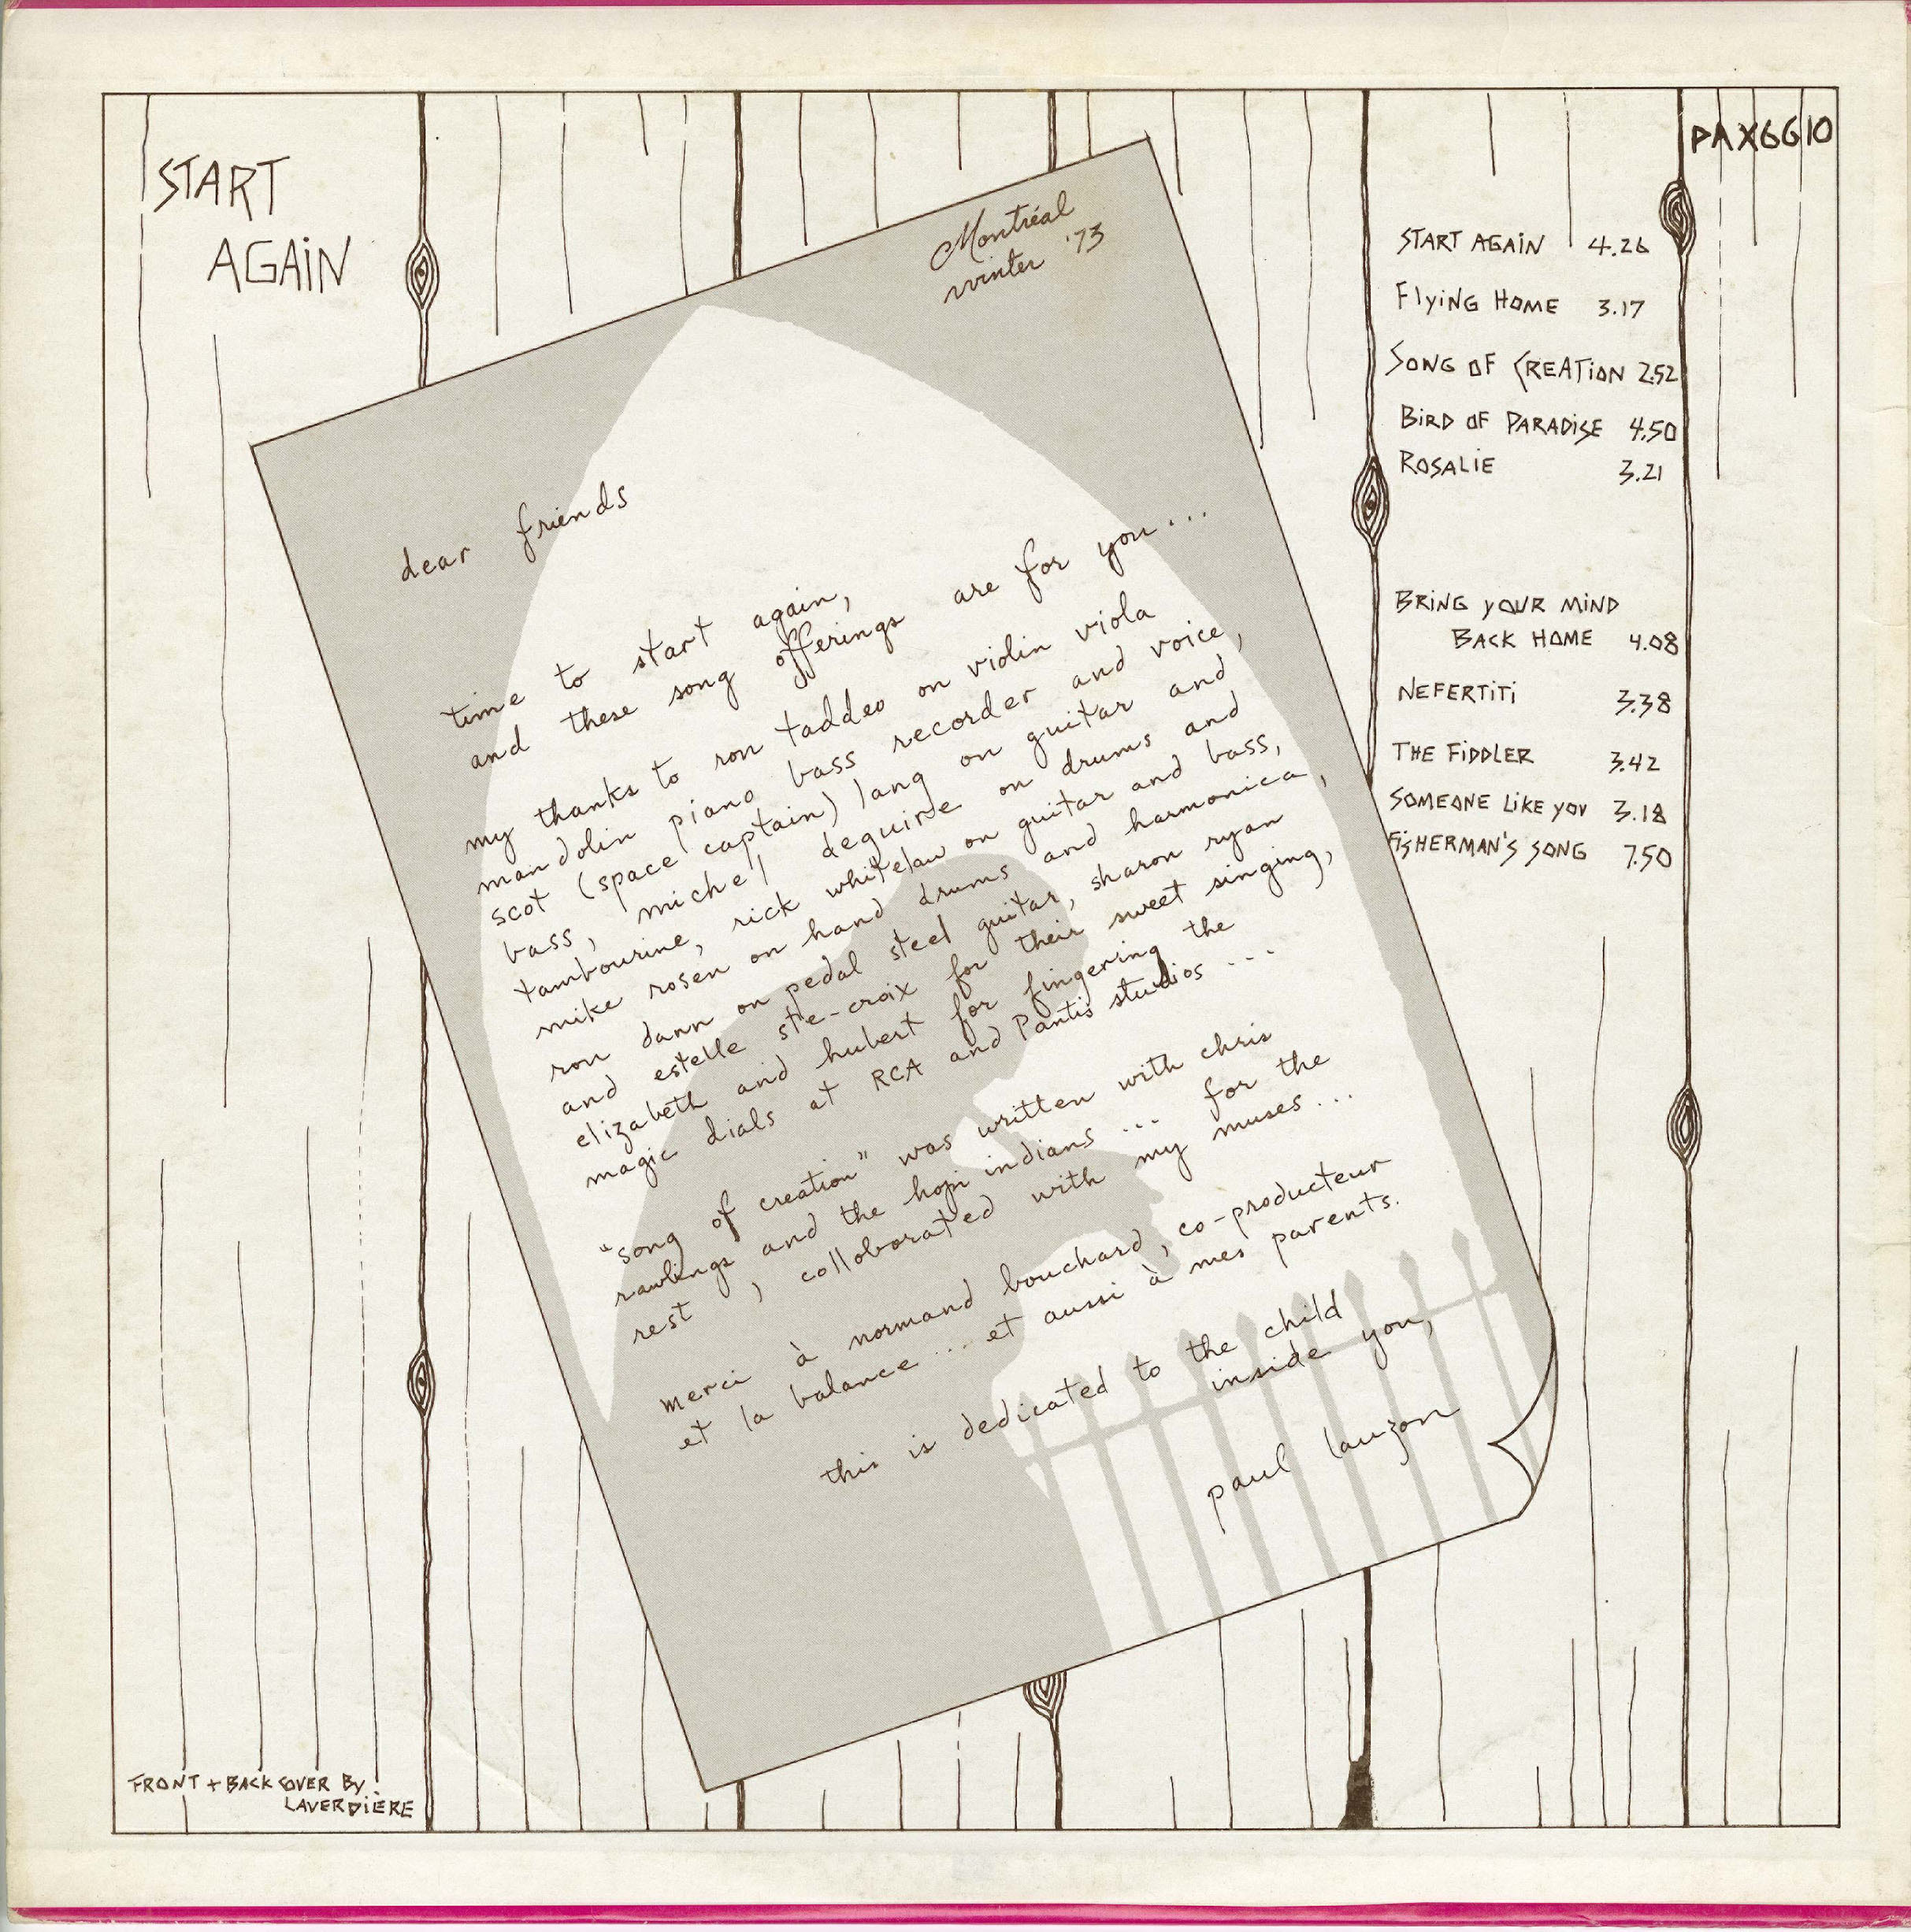 START
AGAiN
PAX6610
Montréal
winter '73
dear friends
time to start again,
and these song offerings are for you...
my thanks to ron taddeo on violin viola
mandolin piano bass recorder and voice,
scot (space captain) lang on guitar and
bass, michel deguire on drums and
tambourine, rick whitelaw on guitar and bass,
mike rosen on hand drums and harmonica,
ron dann on pedal steel guitar, sharon ryan
and estelle ste-croix for their sweet singing,
elizabeth and hubert for fingering the
magic dials at RCA and Pantis studios ...
"song of creation" was written with chris
rawlings and the hopi indians ... for the
rest, colloborated with my muses...
merci à normand bouchard, co-producteur
et la balance ... et aussi à mes parents.
this is dedicated to the child
inside you,
paul lauzon
START AGAiN 4.26
FlyiNG HOME 3.17
SONG OF CREATiON 2.52
BiRD OF PARADiSE 4.50
ROSALiE 3.21
BRiNG yOUR MiND
BACK HOME 4.08
NEFERTiTi 3.38
THE FiDDLER 3.42
SOMEONE LiKE yOU 3.18
FiSHERMAN'S SONG 7.50
FRONT + BACK COVER By
LAVERDiÈRE